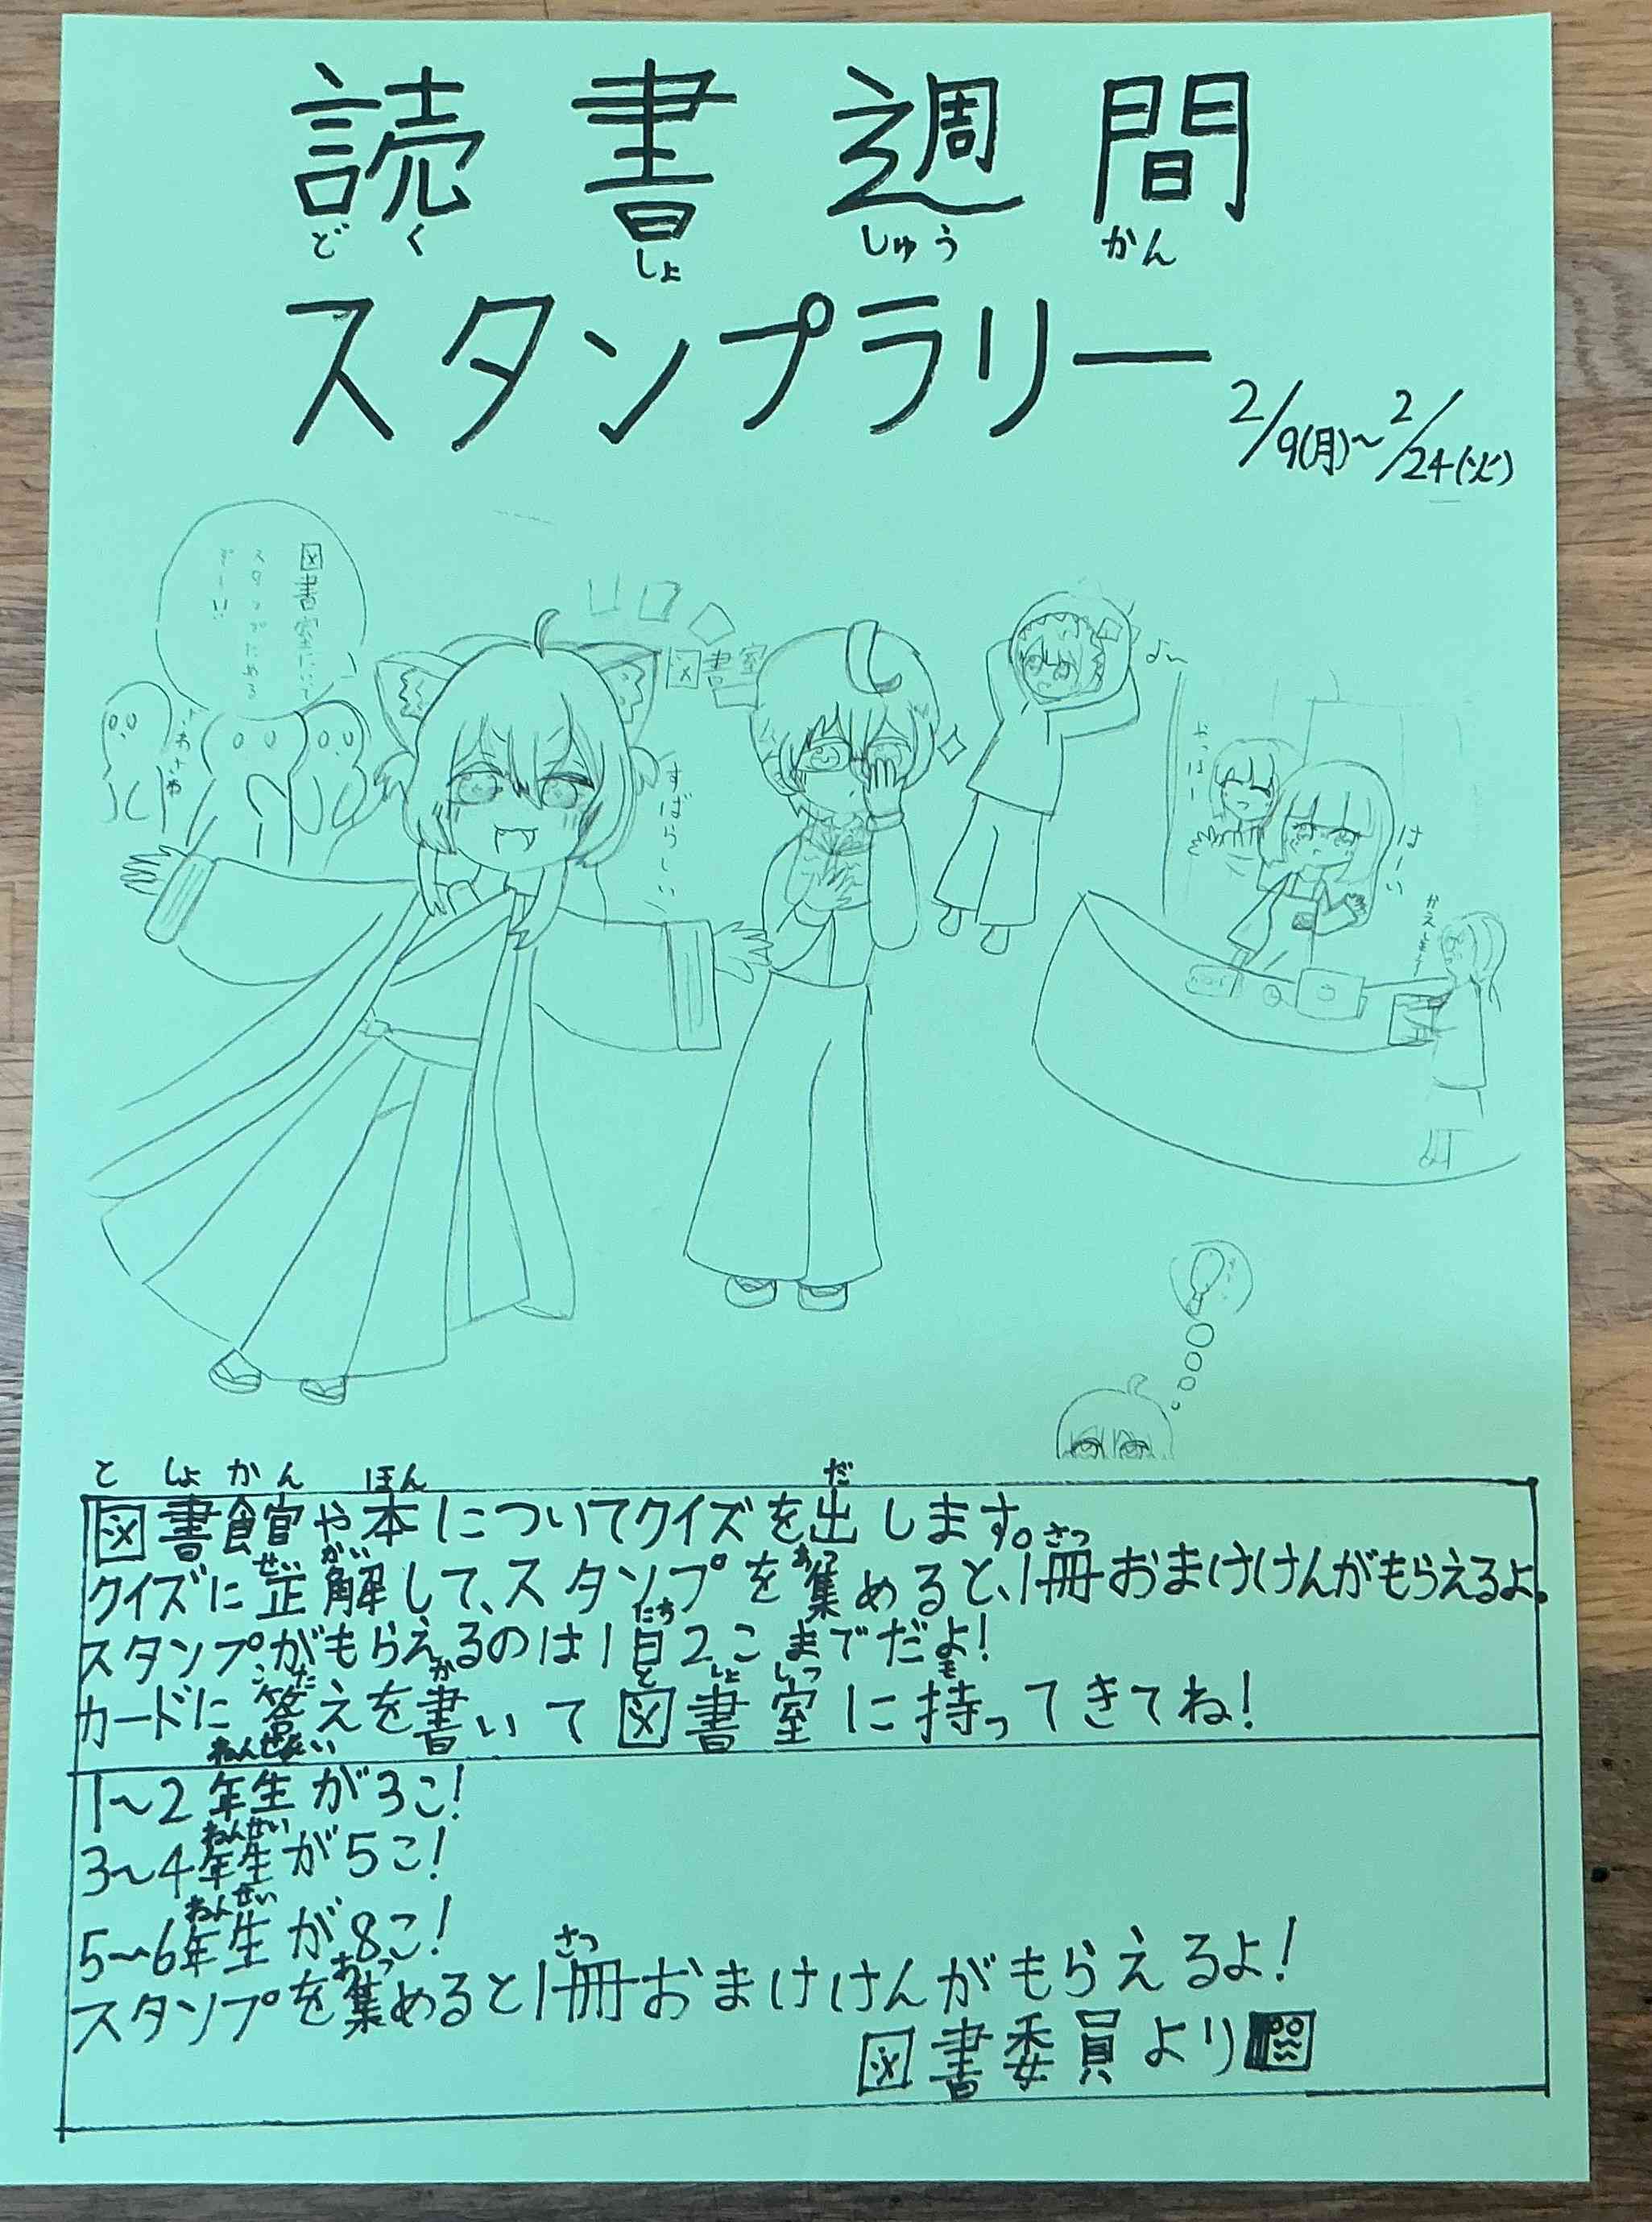 読書週間
どくしょしゅうかん
スタンプラリー
2/9(月)~2/24(火)
図書室にいて
スタンプためる
ずーい
図書室
すばらしい
やっほー
はーい
かえしまーす
としょかん ほん だ
図書館や本についてクイズを出します。
せいかい あつ さつ
クイズに正解して、スタンプを集めると、1冊おまけけんがもらえるよ。
にち
スタンプがもらえるのは1日2こまでだよ!
こた か としょしつ も
カードに答えを書いて図書室に持ってきてね!
ねんせい
1~2年生が3こ!
ねんせい
3~4年生が5こ!
ねんせい
5~6年生が8こ!
あつ さつ
スタンプを集めると1冊おまけけんがもらえるよ!
図書委員より